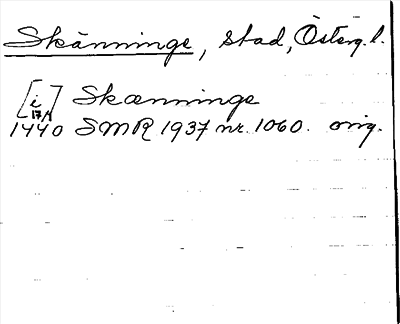 Skänninge, stad, Österg. l.
[i] Skænninge
17/1
1440 SMR 1937 nr. 1060. orig.